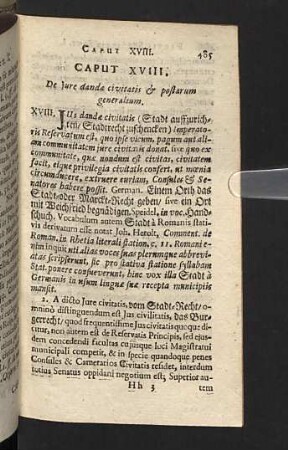 CAPUT XVIII. 485
CAPUT XVIII.
De Jure dandæ civitatis & postarum
generalium.
XVIII. JUs dandæ civitatis (Stadt auffzurich-
ten/ Stadtrecht zuschencken) Imperato-
ris Reservatum est, quo ipse vicum, pagum aut ali-
am communitatem jure civitatis donat, sive quo ex
communitate, quæ nondum est civitas, civitatem
facit, eique privilegia civitatis confert, ut mœnia
circumducere, extruere curiam, Consules & Se-
natores habere possit. German. Einem Orth das
Stadt-oder Marckt-Recht geben/ sive ein Ort
mit Weichfried begnädigen, Speidel, in voc. Hand-
schuch. Vocabulum autem Stadt à Romanis stati-
vis derivatum esse notat Joh. Herolt, Comment. de
Roman. in Rhetia literali station. c. 11. Romani e-
nim inquit nil alias voces suas plerumque abbrevi-
atas scripserunt, sic pro stativa statione syllabam
Stat. ponere consueverunt, hinc vox illa Stadt à
Germanis in usum linguæ suæ recepta municipiis
mansit.
2. A dicto Jure civitatis, vom Stadt-Recht/ o-
mninò distinguendum est Jus civilitatis, das Bur-
gerrecht/ quod frequentissimè Jus civitatis quoque di-
citur, nec autem est de Reservatis Principis, sed ejus-
dem concedendi facultas cujusque loci Magistratui
municipali competit, & in specie quandoque penes
Consules & Camerarios Civitatis residet, interdum
totius Senatus oppidani negotium est; Superior au-
Hh 3 tem